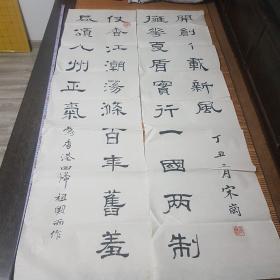 開創千載新風
擁華夏盾實行一國兩制
仗香江潮蕩滌百年舊羞
長頌八州正氣
為香港回歸祖國而作
丁丑二月宋崗